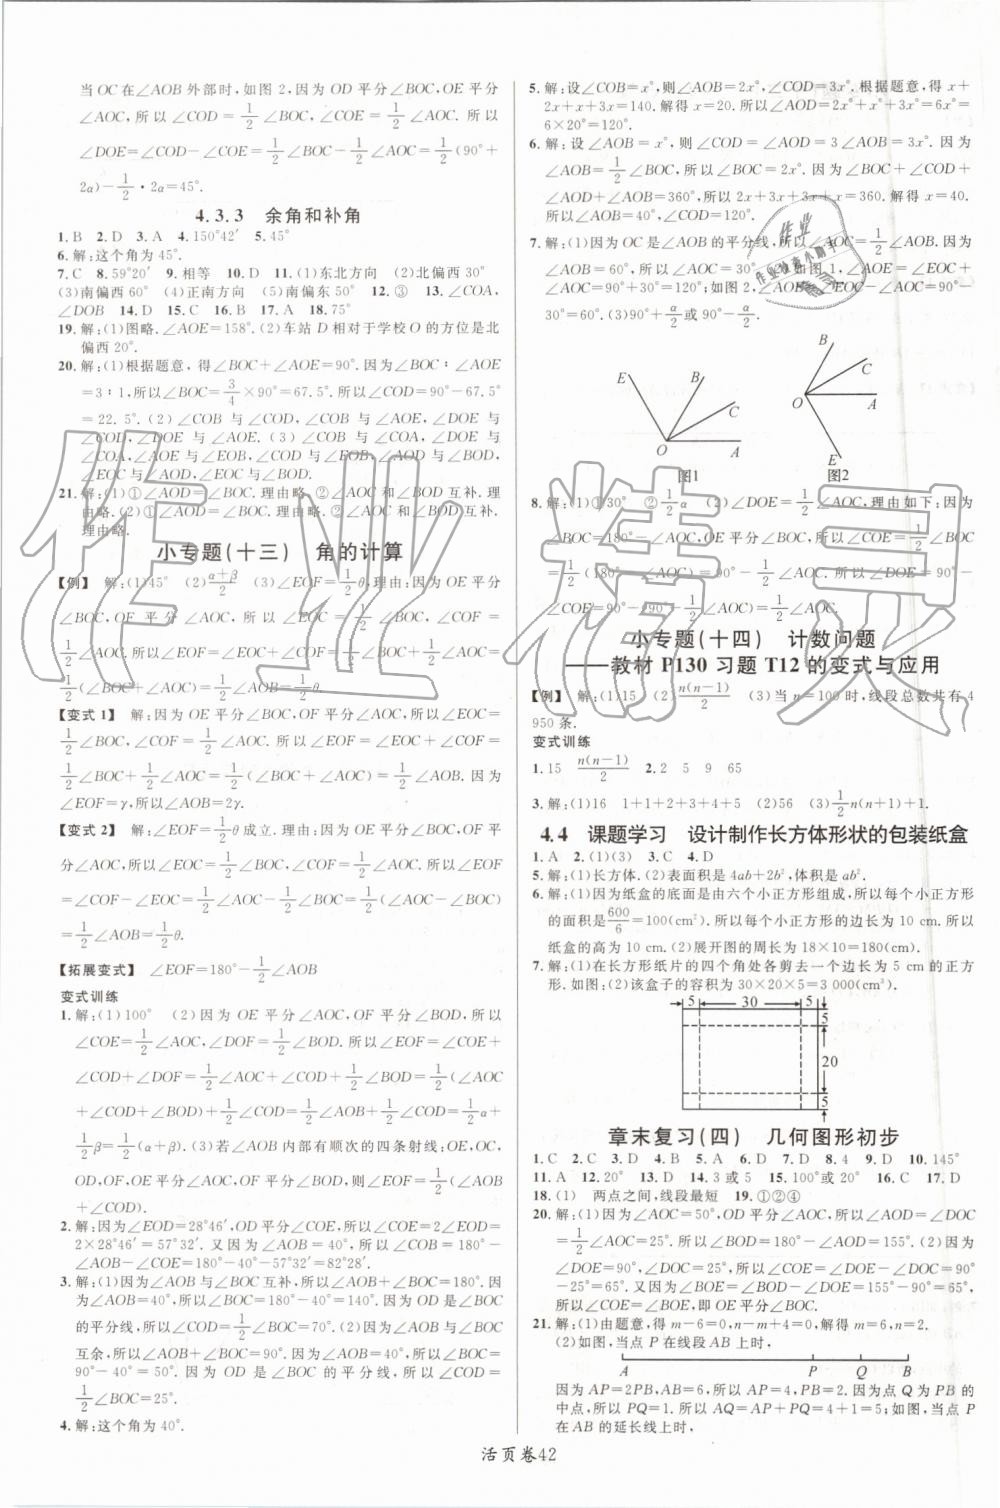 当OC在∠AOB外部时,如图2,因为OD平分∠BOC,OE平分
∠AOC,所以∠COD=1/2∠BOC,∠COE=1/2∠AOC.所以
∠DOE=∠COD-∠COE=1/2∠BOC-1/2∠AOC=1/2(90°+
2α)-1/2·2α=45°.
4.3.3 余角和补角
1.B 2.D 3.A 4.150°42′ 5.45°
6.解:这个角为45°.
7.C 8.59°20′ 9.相等 10.D 11.(1)东北方向 (2)北偏西30°
(3)南偏西60° (4)正南方向 (5)南偏东50° 12.③ 13.∠COA,
∠DOB 14.D 15.C 16.B 17.A 18.75°
19.解:(1)图略.∠AOE=158°.(2)车站D相对于学校O的方位是北
偏西20°.
20.解:(1)根据题意,得∠BOC+∠AOE=90°.因为∠BOC∶∠AOE
=3∶1,所以∠BOC=3/4×90°=67.5°,所以∠COD=90°-67.5°
=22.5°.(2)∠COB与∠COD,∠COB与∠AOE,∠DOE与
∠COD,∠DOE与∠AOE.(3)∠COB与∠COA,∠DOE与
∠COA,∠AOE与∠EOB,∠COD与∠EOB,∠AOD与∠BOD,
∠EOC与∠AOD,∠EOC与∠BOD.
21.解:(1)①∠AOD=∠BOC.理由略.②∠AOC和∠BOD互补.理
由略.(2)①∠AOD=∠BOC.理由略.②∠AOC和∠BOD互补.
理由略.
小专题(十三) 角的计算
【例】 解:(1)45° (2)(α+β)/2 (3)∠EOF=1/2θ,理由:因为OE平分
∠BOC,OF平分∠AOC,所以∠EOC=1/2∠BOC,∠COF=
1/2∠AOC.所以∠EOF=∠EOC+∠COF=1/2∠BOC+
1/2∠AOC=1/2∠AOB=1/2θ.
【变式1】 解:因为OE平分∠BOC,OF平分∠AOC,所以∠EOC=
1/2∠BOC,∠COF=1/2∠AOC.所以∠EOF=∠EOC+∠COF=
1/2∠BOC+1/2∠AOC=1/2(∠BOC+∠AOC)=1/2∠AOB.因为
∠EOF=γ,所以∠AOB=2γ.
【变式2】 解:∠EOF=1/2θ成立.理由:因为OE平分∠BOC,OF平
分∠AOC,所以∠EOC=1/2∠BOC,∠COF=1/2∠AOC.所以∠EOF
=∠COF-∠EOC=1/2∠AOC-1/2∠BOC=1/2(∠AOC-∠BOC)
=1/2∠AOB=1/2θ.
【拓展变式】 ∠EOF=180°-1/2∠AOB
变式训练
1.解:(1)100° (2)因为OE平分∠AOC,OF平分∠BOD,所以
∠COE=1/2∠AOC,∠DOF=1/2∠BOD.所以∠EOF=∠COE+
∠COD+∠DOF=1/2∠AOC+∠COD+1/2∠BOD=1/2(∠AOC
+∠COD+∠BOD)+1/2∠COD=1/2∠AOB+1/2∠COD=1/2α+
1/2β=1/2(α+β).(3)若∠AOB内部有顺次的四条射线:OE,OC,
OD,OF,OE平分∠AOC,OF平分∠BOD,则∠EOF=1/2(∠AOB
+∠COD).
2.解:因为∠EOD=28°46′,OD平分∠COE,所以∠COE=2∠EOD=
2×28°46′=57°32′.又因为∠AOB=40°,所以∠COB=180°-
∠AOB-∠COE=180°-40°-57°32′=82°28′.
3.解:(1)因为∠AOB与∠BOC互补,所以∠AOB+∠BOC=180°.因
为∠AOB=40°,所以∠BOC=180°-40°=140°.因为OD是∠BOC
的平分线,所以∠COD=1/2∠BOC=70°.(2)因为∠AOB与∠BOC
互余,所以∠AOB+∠BOC=90°.因为∠AOB=40°,所以∠BOC=
90°-40°=50°.因为OD是∠BOC的平分线,所以∠COD=
1/2∠BOC=25°.
4.解:这个角为40°.
5.解:设∠COB=x°,则∠AOB=2x°,∠COD=3x°.根据题意,得x+
2x+x+3x=140.解得x=20.所以∠AOD=2x°+x°+3x°=6x°=
6×20°=120°.
6.解:设∠AOB=x°,则∠COD=∠AOD=3∠AOB=3x°.因为
∠AOB=1/2∠BOC,所以∠BOC=2x°.因为∠COB+∠COD+
∠AOD+∠AOB=360°,所以2x+3x+3x+x=360.解得x=40.
所以∠AOB=40°,∠COD=120°.
7.解:(1)因为OC是∠AOB的平分线,所以∠AOC=1/2∠AOB=
30°.(2)如图1,∠AOE=∠EOC+∠AOC=90°+
30°=120°;如图2,∠AOE=∠EOC-∠AOC=90°-
30°=60°.(3)90°+α/2或90°-α/2.
E B C O A 图1
B C O A E 图2
8.解:(1)①30° ②1/2α (2)∠DOE=1/2∠AOC,理由如下:因为
∠BOC=180°-∠AOC,OE平分∠BOC,所以∠COE=1/2∠BOC
=1/2(180°-∠AOC)=90°-1/2∠AOC.所以∠DOE=90°-
∠COE=90°-(90°-1/2∠AOC)=1/2∠AOC.
小专题(十四) 计数问题
——教材P130习题T12的变式与应用
【例】 解:(1)15 (2)n(n-1)/2 (3)当n=100时,线段总数共有4
950条.
变式训练
1.15 n(n-1)/2 2.2 5 9 65
3.解:(1)16 1+1+2+3+4+5 (2)56 (3)1/2n(n+1)+1.
4.4 课题学习 设计制作长方体形状的包装纸盒
1.A 2.(1)(3) 3.C 4.D
5.解:(1)长方体.(2)表面积是4ab+2b²,体积是ab².
6.解:(1)因为纸盒的底面是由六个小正方形组成,所以每个小正方形
的面积是600/6=100(cm²).所以每个小正方形的边长为10 cm.所以
纸盒的高为10 cm.(2)展开图的周长为18×10=180(cm).
7.解:(1)在长方形纸片的四个角处各剪去一个边长为5 cm的正方
形.如图:(2)该盒子的容积为30×20×5=3 000(cm³).
5 30 5
5
20
5
章末复习(四) 几何图形初步
1.C 2.C 3.C 4.B 5.A 6.D 7.D 8.4 9.D 10.145°
11.A 12.20° 13.D 14.3或5 15.100°或20° 16.C 17.D
18.(1) 两点之间,线段最短 19.①②④
20.解:(1)因为∠AOC=50°,OD平分∠AOC,所以∠AOD=∠DOC
=1/2∠AOC=25°.所以∠BOD=180°-∠AOD=155°.(2)因为
∠DOE=90°,∠DOC=25°,所以∠COE=∠DOE-∠DOC=90°
-25°=65°.又因为∠BOE=∠BOD-∠DOE=155°-90°=65°,
所以∠COE=∠BOE,即OE平分∠BOC.
21.解:(1)由题意,得m-6=0,n-m+4=0,解得m=6,n=2.
(2)如图,当点P在线段AB上时,
A P Q B
因为AP=2PB,AB=6,所以AP=4,PB=2.因为点Q为PB的
中点,所以PQ=1.所以AQ=AP+PQ=4+1=5;如图,当点P
在AB的延长线上时,
活页卷42
作业精灵